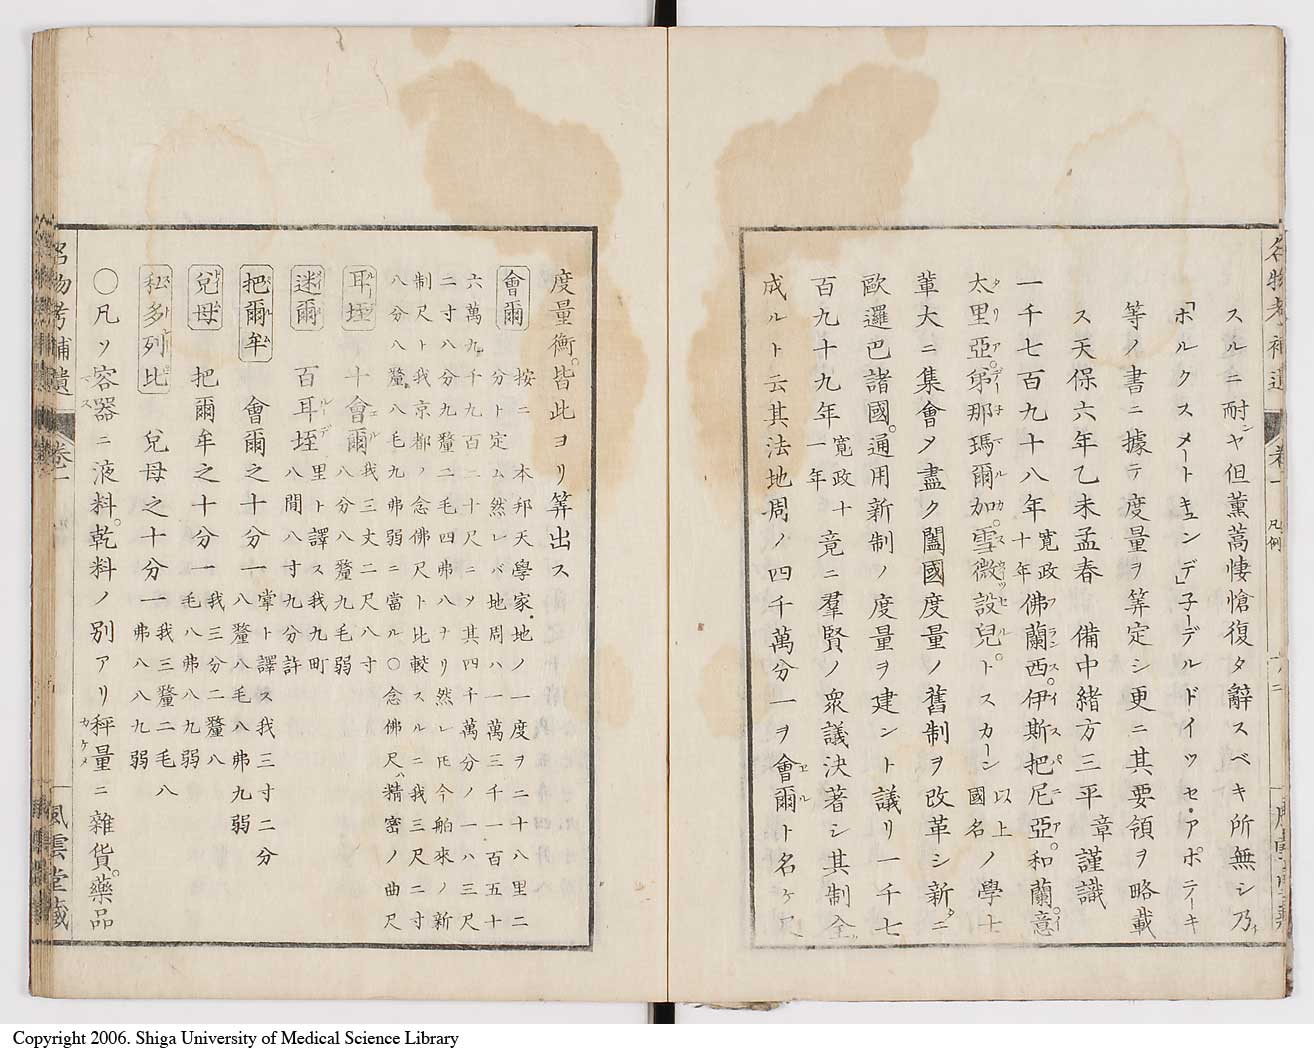 名物考補遺 卷一 凡例
スルニ耐ヤ但薰蒿悽愴復タ辭スベキ所無シ乃
「ボルクスメートキュンデ」子ーデルドイッセ・アポテーキ
等ノ書ニ據テ度量ヲ筭定シ更ニ其要領ヲ略載
ス天保六年乙未孟春 備中緒方三平 章謹識
一千七百九十八年寛政十年佛蘭西。伊斯把尼亞。和蘭。意
太里亞。第那瑪爾加。雪微設兒。トスカーン以上國名ノ學士
輩大ニ集會メ盡ク闔國度量ノ舊制ヲ改革シ新タニ
歐邏巴諸國。通用新制ノ度量ヲ建ント議リ一千七
百九十九年寛政十一年竟ニ羣賢ノ衆議決著シ其制全ク
成ルト云其法地周ノ四千萬分一ヲ會爾ト名ケ尺
度量衡。皆此ヨリ筭出ス
會爾 按ニ本邦天學家。地ノ一度ヲ二十八里二
分ト定ム然レバ地周ハ一萬三千一百五十
六萬九千九百二十尺ニソ其四千萬分ノ一ハ三尺
二寸八分九釐二毛四弗八ナリ然レ𪜈今舶來ノ新
制尺ト我京都ノ念佛尺ト比較スルニ我三尺二寸
八分八釐八毛九弗弱ニ當ル〇念佛尺ハ精密ノ曲尺
耳垤 十會爾我三丈二尺八寸
八分八釐九毛弱
迷爾 百耳垤里ト譯ス我九町
八間八寸九分許
把爾牟 會爾之十分一掌ト譯ス我三寸二分
八釐八毛八弗九弱
兌母 把爾牟之十分一我三分二釐八
毛八弗八九弱
私多列比 兌母之十分一我三釐二毛八
弗八八九弱
〇凡ソ容器ニ液料。乾料ノ別アリ秤量ニ雜貨。藥品
名物考補遺 卷一
風雲堂藏
Copyright 2006. Shiga University of Medical Science Library